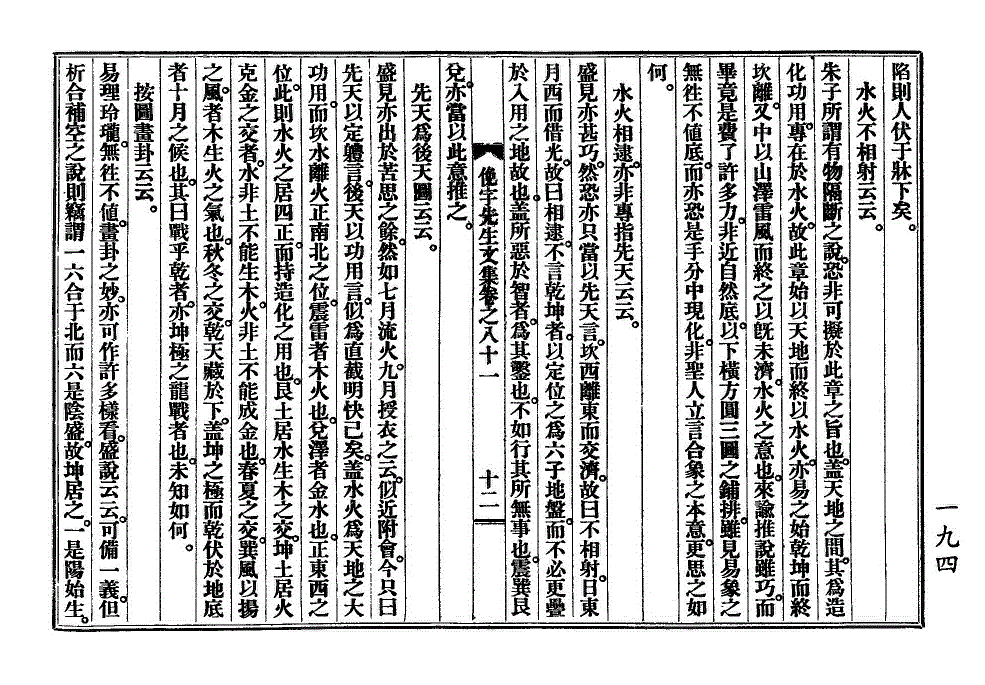 陷則人伏于牀下矣。
水火不相射云云。
朱子所謂有物隔斷之說。恐非可擬於此章之旨也。蓋天地之間。其爲造
化功用。專在於水火。故此章始以天地而終以水火。亦易之始乾坤而終
坎離。又中以山澤雷風而終之以旣未濟。水火之意也。來諭推說雖巧。而
畢竟是費了許多力。非近自然底。以下橫方圓三圖之鋪排。雖見易象之
無徃不値底。而亦恐是手分中現化。非聖人立言合象之本意。更思之如
何。
水火相逮。亦非專指先天云云。
盛見亦甚巧。然恐亦只當以先天言。坎西離東而交濟。故曰不相射。日東
月西而借光。故曰相逮。不言乾坤者。以定位之爲六子地盤。而不必更疊
於入用之地故也。蓋所惡於智者。爲其鑿也。不如行其所無事也。震巽艮
俛宇先生文集卷之八十一 十二
兌。亦當以此意推之。
先天爲後天圖云云。
盛見亦出於苦思之餘。然如七月流火。九月授衣之云。似近附會。今只曰
先天以定軆言。後天以功用言。似爲直截明快已矣。蓋水火爲天地之大
功用。而坎水離火正南北之位。震雷者木火也。兌澤者金水也。正東西之
位。此則水火之居四正。而持造化之用也。艮土居水生木之交。坤土居火
克金之交者。水非土不能生木。火非土不能成金也。春夏之交。巽風以揚
之。風者木生火之氣也。秋冬之交。乾天藏於下。蓋坤之極而乾伏於地底
者十月之候也。其曰戰乎乾者。亦坤極之龍戰者也。未知如何。
按圖畫卦云云。
易理玲瓏。無徃不値。畫卦之妙。亦可作許多㨾看。盛說云云。可備一義。但
析合補空之說則竊謂一六合于北而六是陰盛。故坤居之。一是陽始生。
一九四